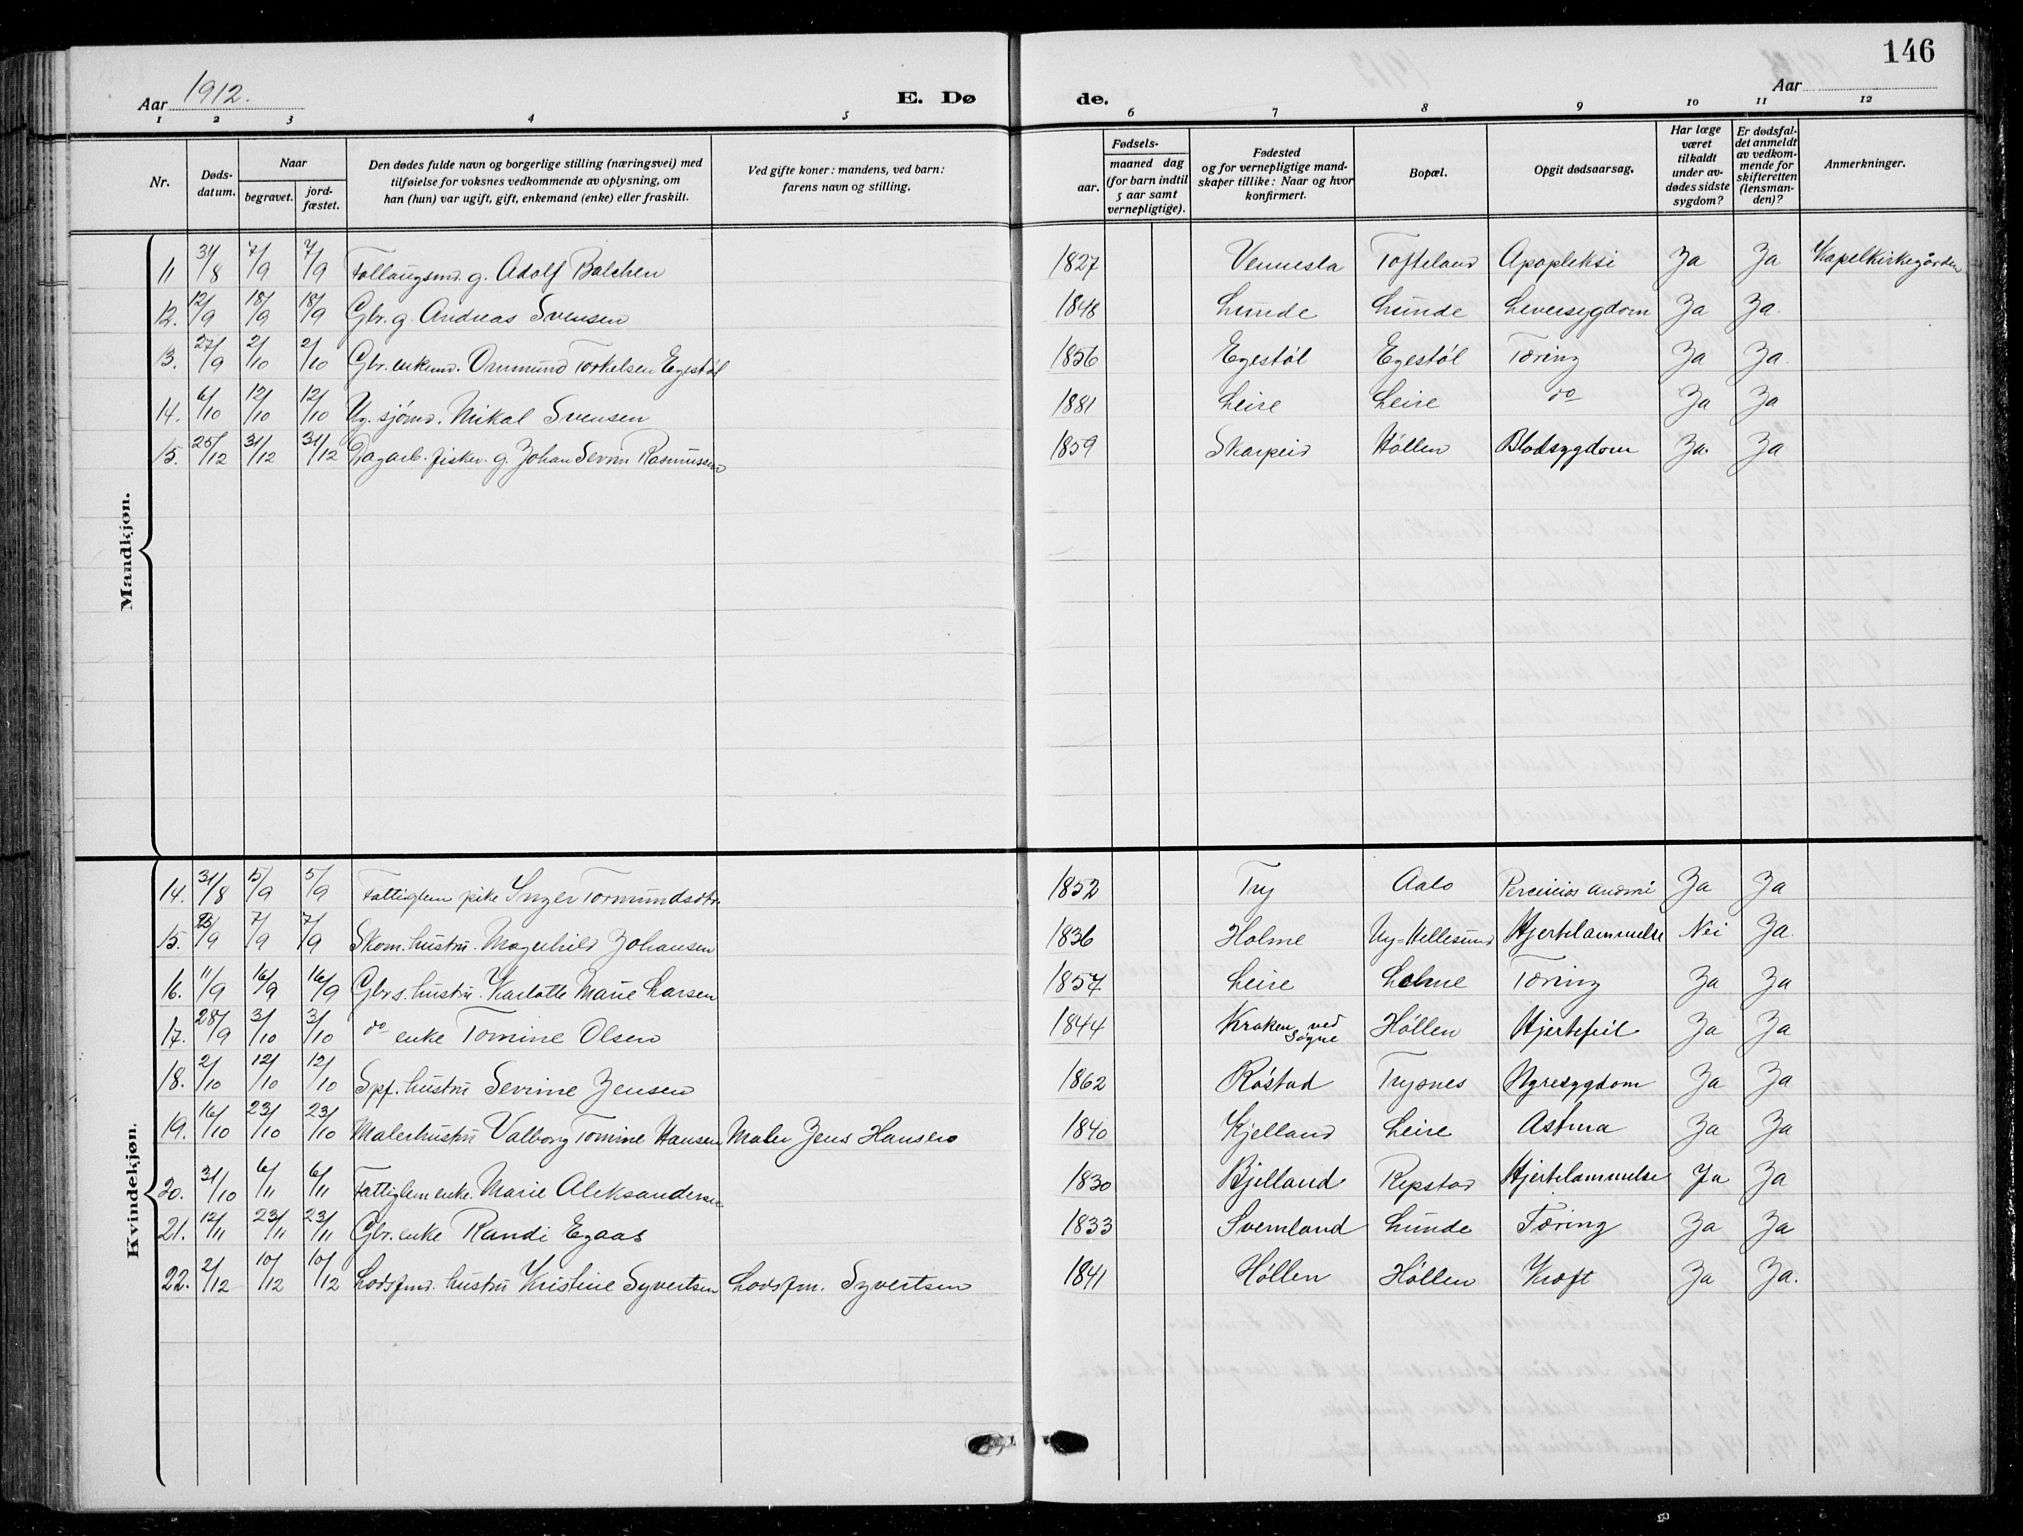 146
Aar 1912.
E. Dø
de.
Aar
1 2 3 4 5 6 7 8 9 10 11 12
Nr.
Døds-
datum.
Naar
begravet.
jord-
fæstet.
Den dødes fulde navn og borgerlige stilling (næringsvei) med
tilføielse for voksnes vedkommende av oplysning, om
han (hun) var ugift, gift, enkemand (enke) eller fraskilt.
Ved gifte koner: mandens, ved barn:
farens navn og stilling.
Fødsels-
aar.
maaned dag
(for barn indtil
5 aar samt
vernepligtige).
Fødested
og for vernepligtige mand-
skaper tillike: Naar og hvor
konfirmert.
Bopæl.
Opgit dødsaarsag.
Har læge
været
tilkaldt
under av-
dødes sidste
sygdom?
Er dødsfal-
det anmeldt
av vedkom-
mende for
skifteretten
(lensman-
den)?
Anmerkninger.
Mandkjøn.
11 31/8 7/9 7/9 g. Adolf Balchen 1827 Vennesla Tofteland Apopleksi Ja Ja Kapelkirkegården
12. 12/9 18/9 18/9 Gbr. g. Andreas Svensen 1848 Lunde Lunde Leversygdom Ja Ja.
13. 27/9 2/10 2/10 Gbr. enkem. Ommund Torkelsen Egestøl 1856 Egestøl Egestøl Tæring Ja Ja.
14. 6/10 12/10 12/10 Ug. sjømd. Mikal Svensen 1881 Leire Leire do Ja Ja
15. 25/12 31/12 31/12 Dagarb. fisker. g. Johan Severin Rasmussen 1859 Skarpeid Høllen Blodsygdom Ja. Ja
Kvindekjøn.
14. 31/8 5/9 5/9 Fattiglem pike Inger Tormundsdtr. 1852 Try Aalo Ja Ja
15. 7/9 7/9 Skom. hustru. Magnhild Johansen 1836 Holme Ny-Hellesund Hjertelammelse Nei Ja.
16. 11/9 16/9 16/9 Gbrs. hustru. Karlotte Marie Larsen 1857 Leire Tæring Ja Ja
17. 28/9 3/10 3/10 do enke Tomine Olsen 1844 Kraken ved Søgne Høllen Hjertefeil Ja Ja
18. 2/10 12/10 12/10 Spf. hustru Serine Jensen 1862 Røstad Trysnes Nyresygdom Ja Ja
19. 16/10 23/10 23/10 Malerhustru Valborg Tomine Hansen Maler Jens Hansen 1840 Kjelland Leire Astma Ja Ja
20. 31/10 6/11 6/11 Fattiglem enke. Marie Aleksandersen 1830 Bjelland Repstad Hjertelammelse Ja Ja
21. 12/11 23/11 23/11 Gbr. enke Randi Egaas 1833 Svemland Lunde Tæring Ja Ja
22. 2/12 10/12 10/12 Lodsfmd. hustru Kristine Syvertsen Lodsfm. Syvertsen 1841 Høllen Høllen Kræft Ja Ja.